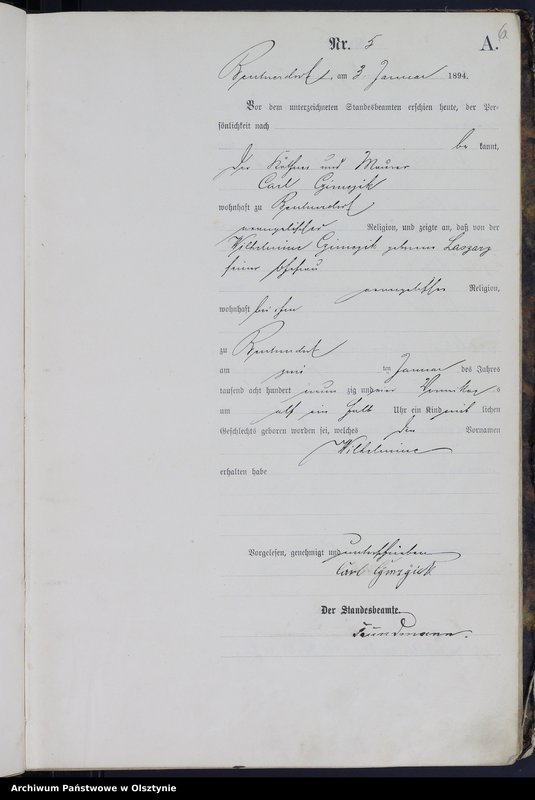 6
Nr. 5
A.
am 3. Januar 1894.
Vor dem unterzeichneten Standesbeamten erschien heute, der Per-
sönlichkeit nach
be kannt,
der Käthner und Maurer
Carl
wohnhaft zu
evangelischer Religion, und zeigte an, daß von der
Wilhelmine geborene
seiner Ehefrau
evangelischer Religion,
wohnhaft bei ihm
zu
am zwei ten Januar des Jahres
tausend acht hundert neun zig und vier Vormittags
um elf ein halb Uhr ein Kind weib lichen
Geschlechts geboren worden sei, welches den Vornamen
Wilhelmine
erhalten habe
Vorgelesen, genehmigt und unterschrieben
Carl
Der Standesbeamte.
Archiwum Państwowe w Olsztynie